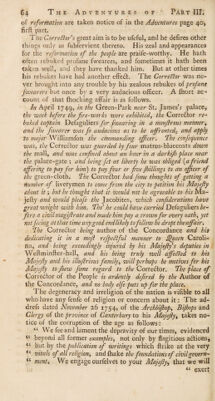 64 The Adventures of Part III.
of reformation are taken notice of in the Adventures page 40,
first part.
The Corrector's great aim is to be useful, and he desires other
things only as subservient thereto. His zeal and appearances
for the reformation of the people are praise-worthy. He hath
often rebuked profane swearers, and sometimes it hath been
taken well, and they have thanked him. But at other times
his rebukes have had another effect. The Corrector was ne-
ver brought into any trouble by his zealous rebukes of profane
swearers but once by a very audacious officer. A short ac-
count of that shocking affair is as follows.
In April 1749, in the Green-Park near St. James's palace,
the week before the fire-works were exhibited, the Corrector re-
buked captain Delaguliers for swearing in a monstrous manner,
and the swearer was so audacious as to be affronted, and apply
to major Williamson the commanding officer. The consequence
was, the Corrector was guarded by four matross-blaccoats about
the walk, and was confined about an hour in a darkish place near
the palace-gate; and being set at liberty he was obliged (a friend
offering to pay for him) to pay four or five shillings to an officer of
the green-cloth. The Corrector had some thoughts of getting a
number of liverymen to come from the city to petition his Majesty
about it; but he thought that it would not be agreeable to his Ma-
jesty and would please the Jacobites, which considerations have
great weight with him. Yet he could have carried Delaguliers be-
fore a civil magistrate and made him pay a crown for every oath, yet
not seeing at that time any great need likely to follow he dropt the affair.
The Corrector being author of the Concordance and his
dedicating it in a most respectful manner to Queen Carolí-
na, and being exceedingly injured by his Majesty's deputies in
Westminster-hall, and his being truly well affected to his
Majesty and his illustrious family, will perhaps be motives for his
Majesty to shew some regard to the Corrector. The place of
Corrector of the People is ardently desired by the Author of
the Concordance, and no body else puts up for the place.
The degeneracy and irreligion of the nation is visible to all
who have any sense of religion or concern about it: The ad-
dress dated November 26 1754, of the Archbishop, Bishops and
Clergy of the province of Canterbury to his Majesty, takes no-
tice of the corruption of the age as follows:
" We see and lament the depravity of our times, evidenced
" beyond all former examples, not only by flagitious actions,
" but by the publication of writings which strike at the very
" vitals of all religion, and shake the foundations of civil govern-
" ment. We engage ourselves to your Majesty, that we will
" exert